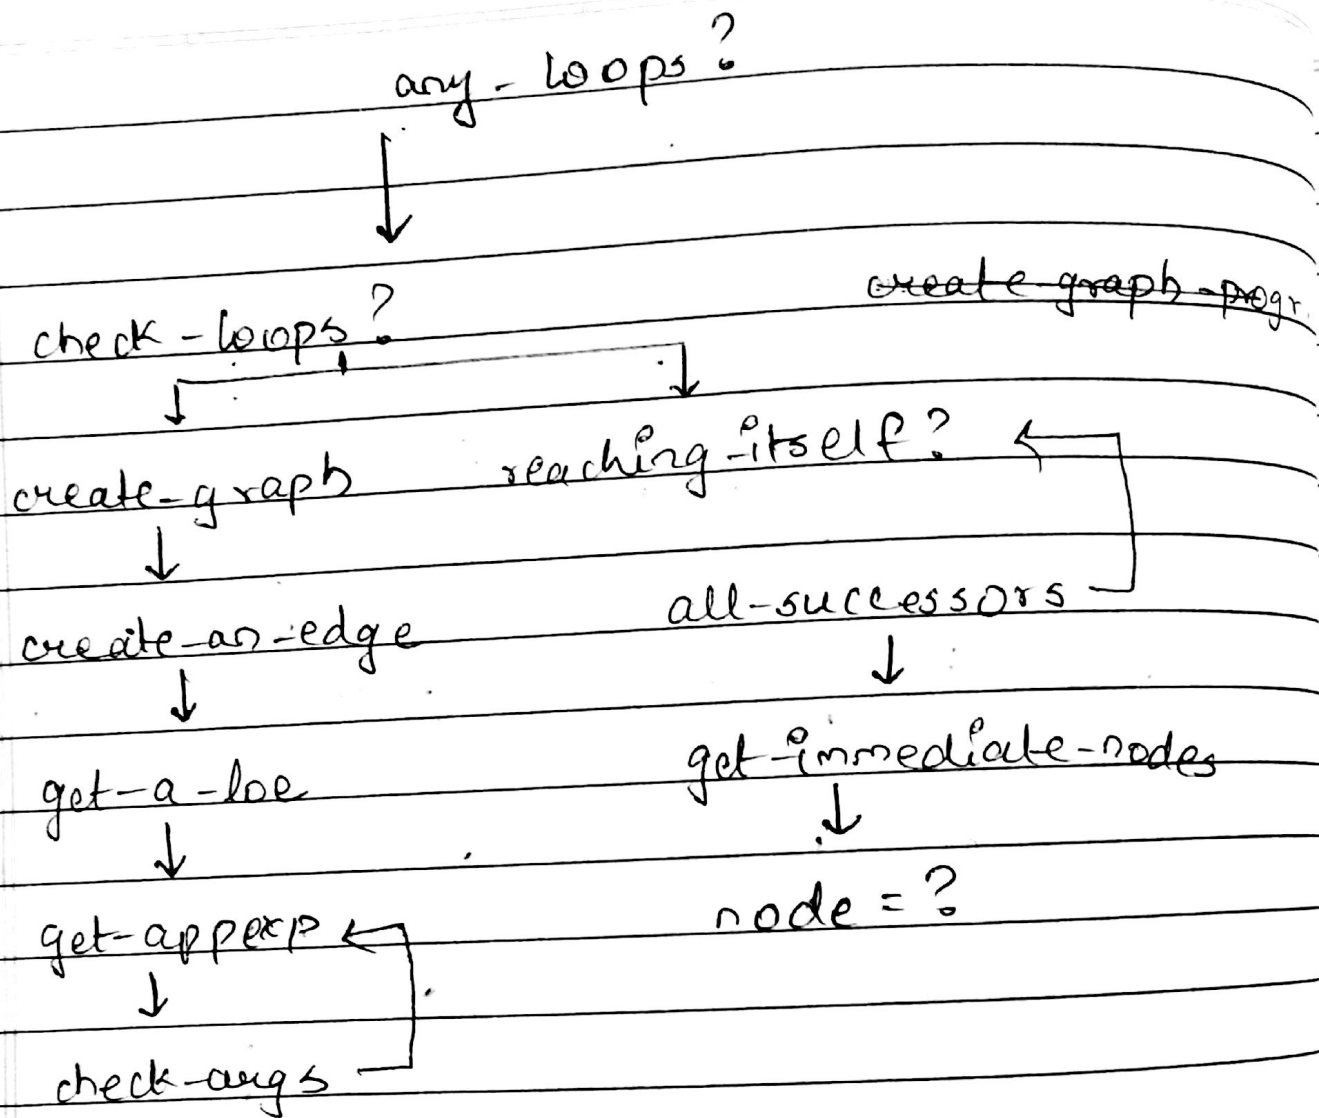 any-loops?
create-graph-progr.
check-loops?
create-graph reaching-itself?
create-an-edge all-successors
get-a-loe get-immediate-nodes
get-appexp node=?
check-args